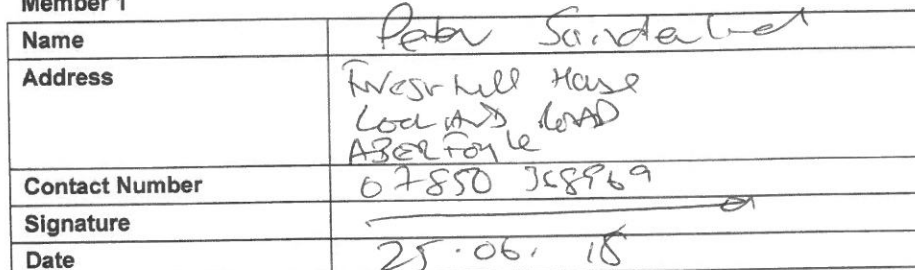 Member 1
Name Peter Sunderland
Address Forest Hill House
ROAD
ABERFOYLE
Contact Number 07850 368969
Signature
Date 25.06.18